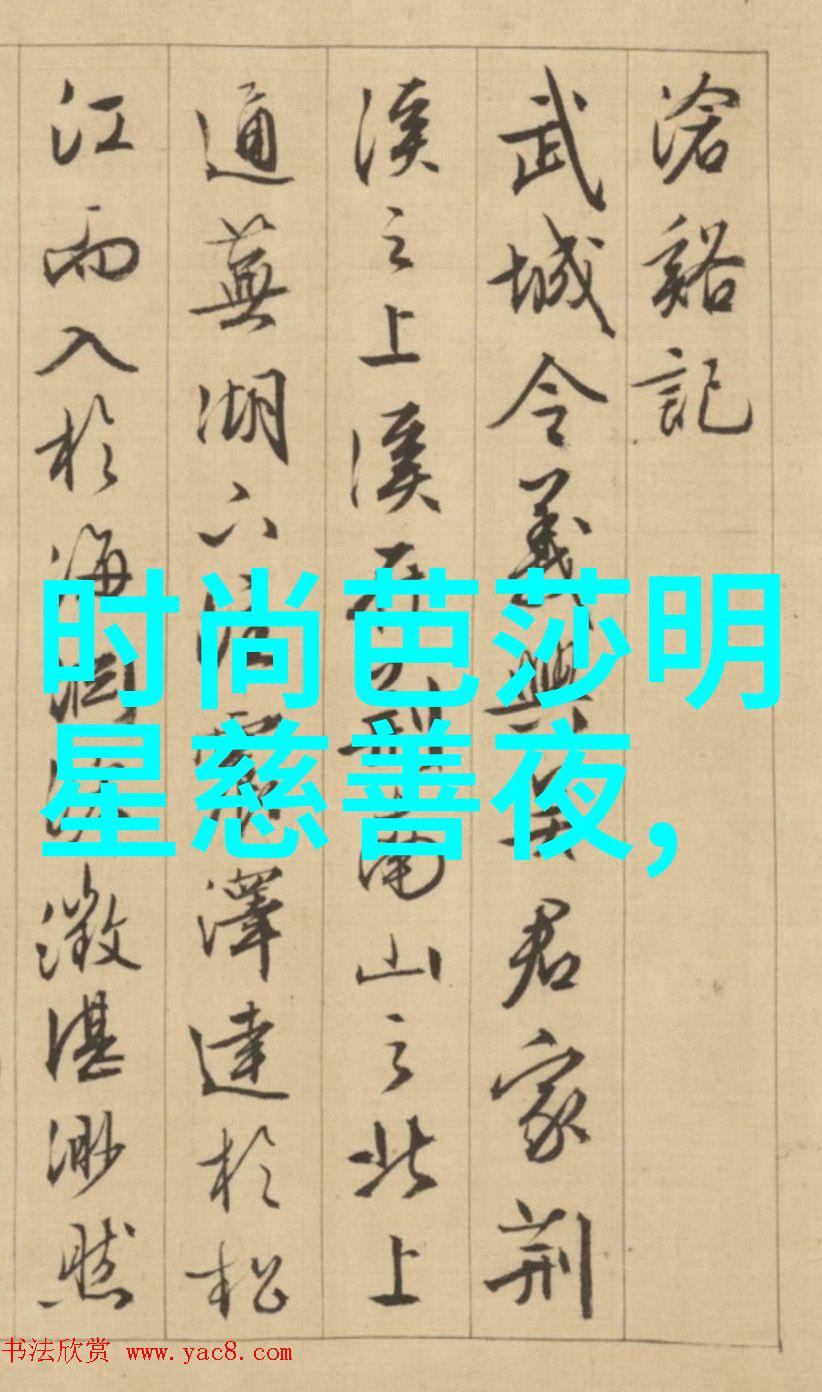 滄谿記
武城令義興君家荆
溪之上溪南山之北上
通蕪湖澤達於松
江而入於海澂湛渺然
时尚芭莎明
星慈善夜,
书法欣赏 www.yac8.com